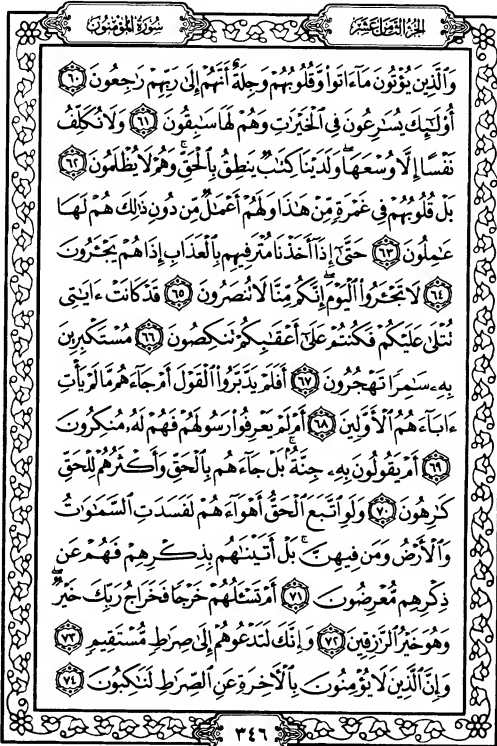 الجزء الثامن عشر
سورة المؤمنون
وَٱلَّذِينَ يُؤْتُونَ مَآ ءَاتَوا۟ وَّقُلُوبُهُمْ وَجِلَةٌ أَنَّهُمْ إِلَىٰ رَبِّهِمْ رَٰجِعُونَ ٦٠
أُو۟لَٰٓئِكَ يُسَٰرِعُونَ فِى ٱلْخَيْرَٰتِ وَهُمْ لَهَا سَٰبِقُونَ ٦١ وَلَا نُكَلِّفُ
نَفْسًا إِلَّا وُسْعَهَا ۖ وَلَدَيْنَا كِتَٰبٌ يَنطِقُ بِٱلْحَقِّ ۚ وَهُمْ لَا يُظْلَمُونَ ٦٢
بَلْ قُلُوبُهُمْ فِى غَمْرَةٍ مِّنْ هَٰذَا وَلَهُمْ أَعْمَٰلٌ مِّن دُونِ ذَٰلِكَ هُمْ لَهَا
عَٰمِلُونَ ٦٣ حَتَّىٰٓ إِذَآ أَخَذْنَا مُتْرَفِيهِم بِٱلْعَذَابِ إِذَا هُمْ يَجْـَٔرُونَ
٦٤ لَا تَجْـَٔرُوا۟ ٱلْيَوْمَ ۖ إِنَّكُم مِّنَّا لَا تُنصَرُونَ ٦٥ قَدْ كَانَتْ ءَايَٰتِى
تُتْلَىٰ عَلَيْكُمْ فَكُنتُمْ عَلَىٰٓ أَعْقَٰبِكُمْ تَنكِصُونَ ٦٦ مُسْتَكْبِرِينَ
بِهِۦ سَٰمِرًا تَهْجُرُونَ ٦٧ أَفَلَمْ يَدَّبَّرُوا۟ ٱلْقَوْلَ أَمْ جَآءَهُم مَّا لَمْ يَأْتِ
ءَابَآءَهُمُ ٱلْأَوَّلِينَ ٦٨ أَمْ لَمْ يَعْرِفُوا۟ رَسُولَهُمْ فَهُمْ لَهُۥ مُنكِرُونَ
٦٩ أَمْ يَقُولُونَ بِهِۦ جِنَّةٌۢ ۚ بَلْ جَآءَهُم بِٱلْحَقِّ وَأَكْثَرُهُمْ لِلْحَقِّ
كَٰرِهُونَ ٧٠ وَلَوِ ٱتَّبَعَ ٱلْحَقُّ أَهْوَآءَهُمْ لَفَسَدَتِ ٱلسَّمَٰوَٰتُ
وَٱلْأَرْضُ وَمَن فِيهِنَّ ۚ بَلْ أَتَيْنَٰهُم بِذِكْرِهِمْ فَهُمْ عَن
ذِكْرِهِم مُّعْرِضُونَ ٧١ أَمْ تَسْـَٔلُهُمْ خَرْجًا فَخَرَاجُ رَبِّكَ خَيْرٌ ۖ
وَهُوَ خَيْرُ ٱلرَّٰزِقِينَ ٧٢ وَإِنَّكَ لَتَدْعُوهُمْ إِلَىٰ صِرَٰطٍ مُّسْتَقِيمٍ ٧٣
وَإِنَّ ٱلَّذِينَ لَا يُؤْمِنُونَ بِٱلْـَٔاخِرَةِ عَنِ ٱلصِّرَٰطِ لَنَٰكِبُونَ ٧٤
٣٤٦